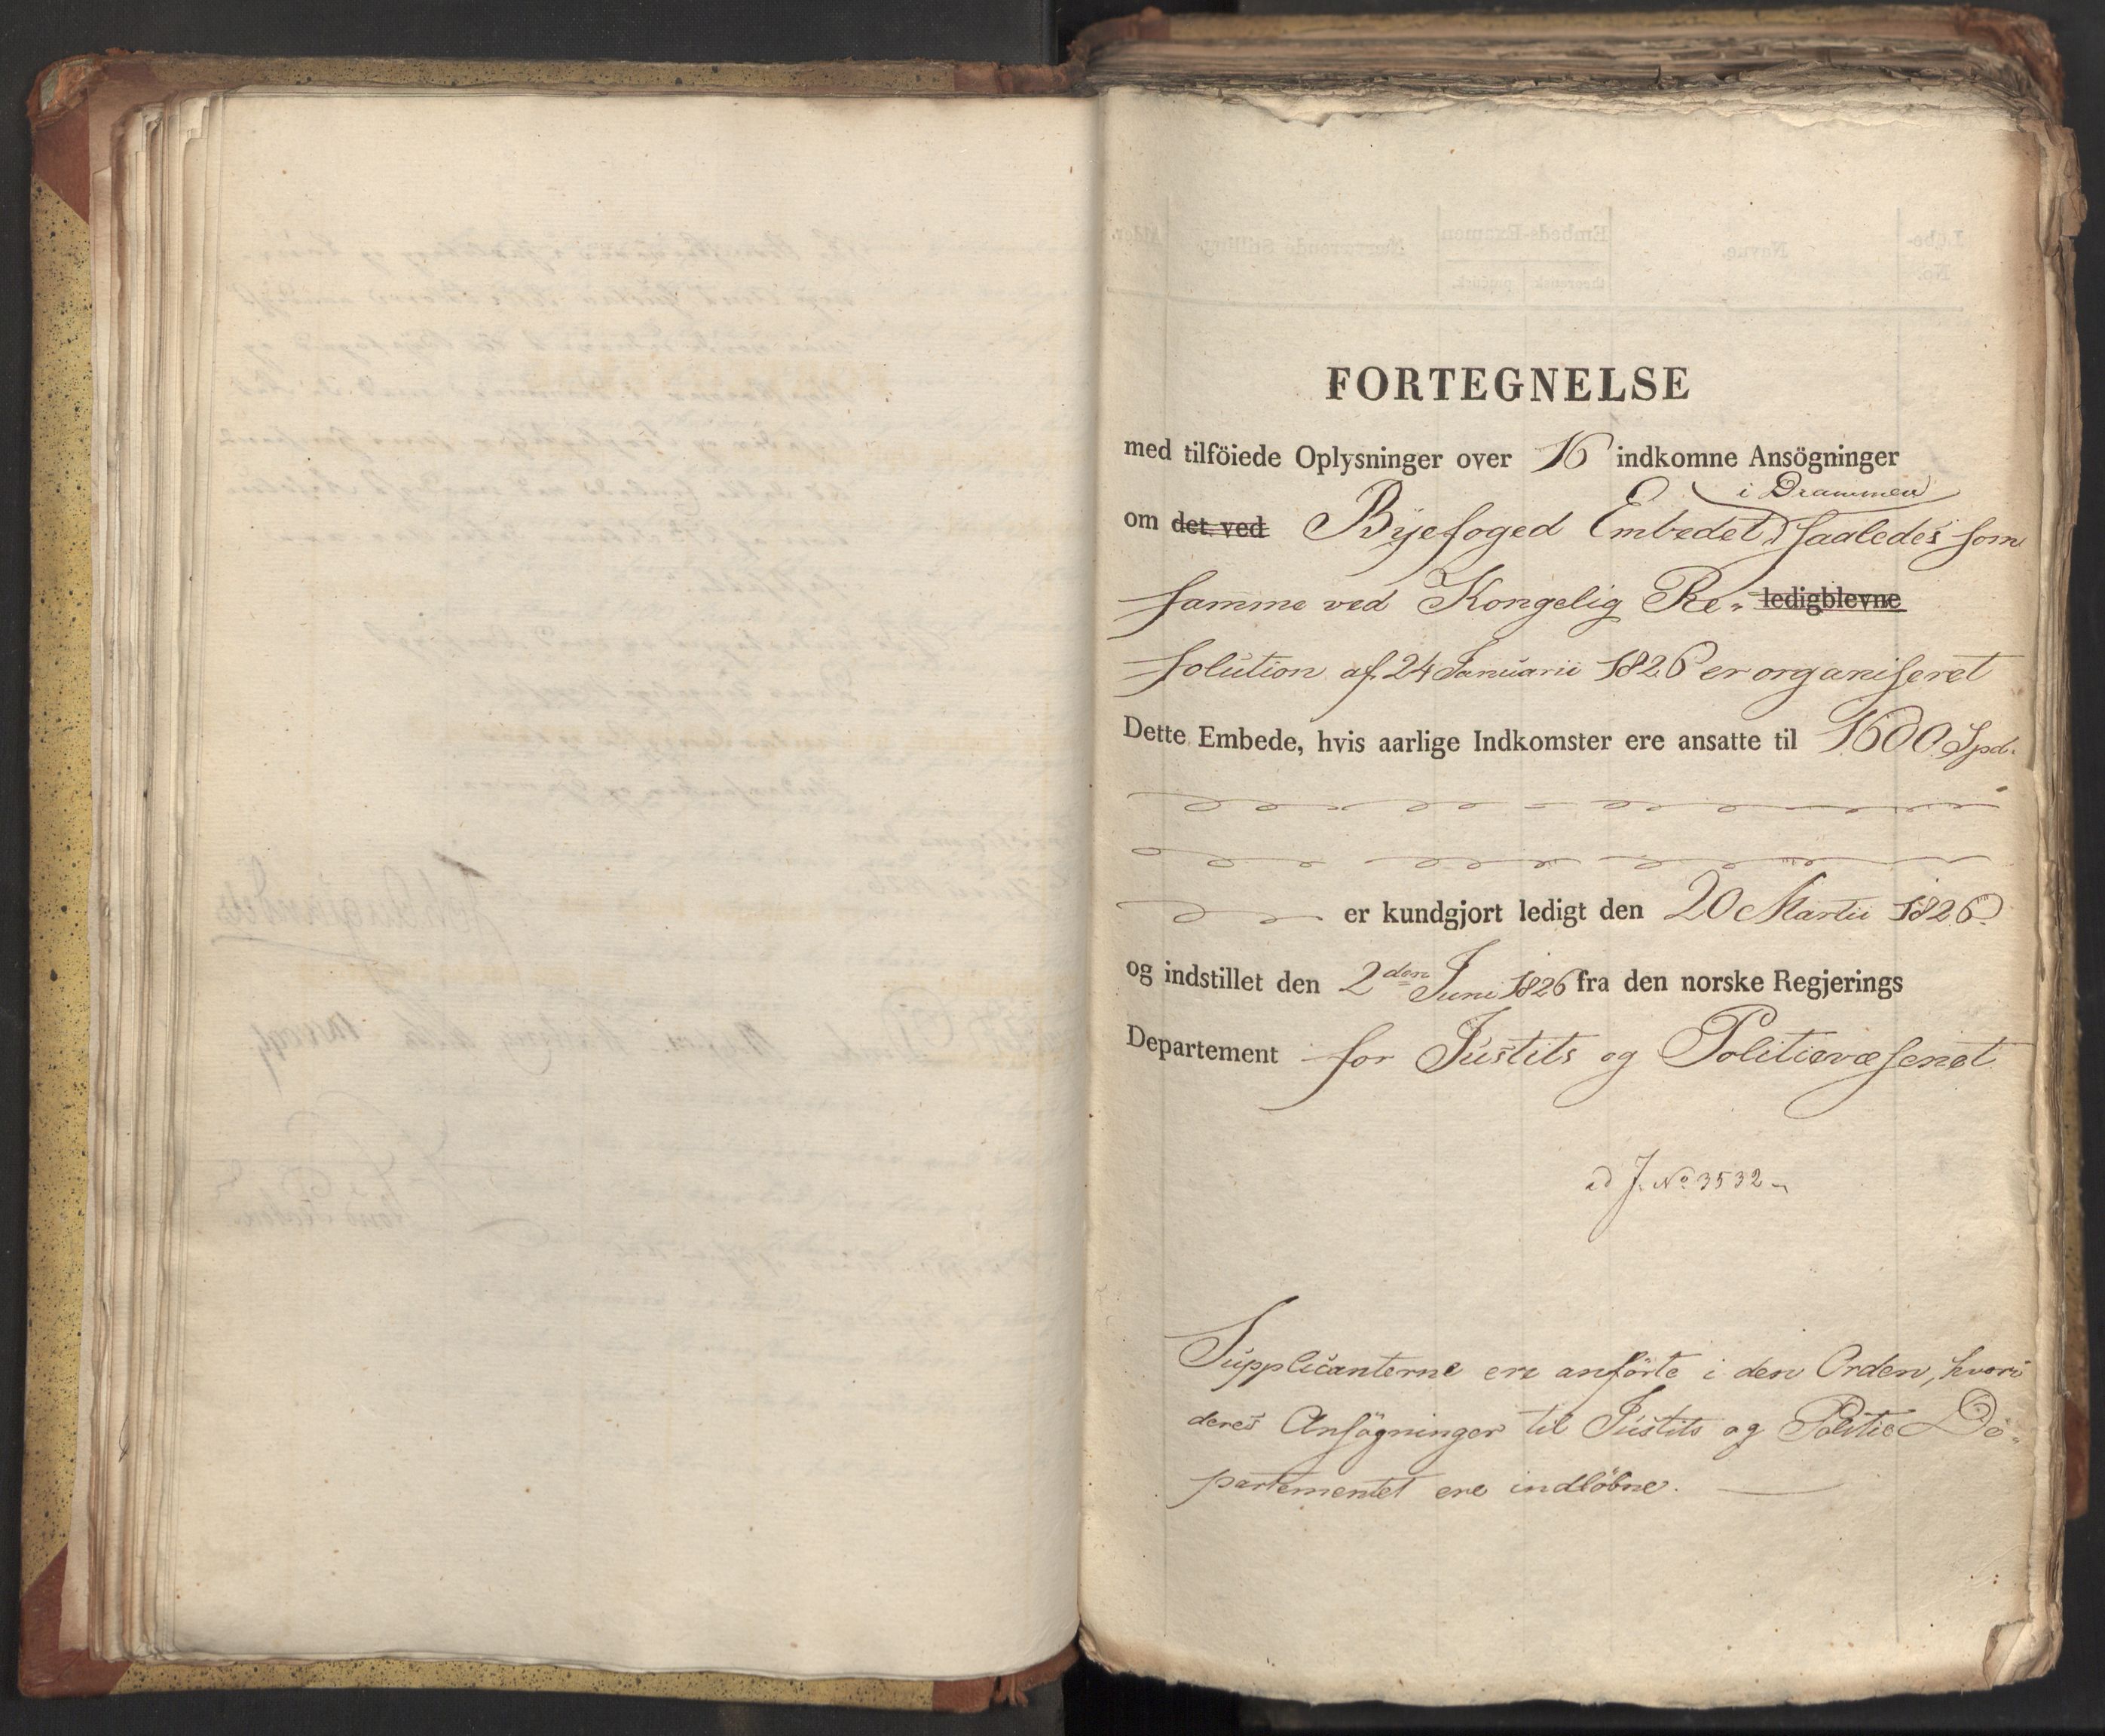 FORTEGNELSE
med tilföiede Oplysninger over 16 indkomne Ansögninger
i Drammen
om det ved Byefoged Embedet, saaledes som
samme ved Kongelig Re- ledigblevne
solution af 24 Januarii 1826 er organiseret
Dette Embede, hvis aarlige Indkomster ere ansatte til 1600 Spd.
er kundgjort ledigt den 20 Martii 1826
og indstillet den 2den Juni 1826 fra den norske Regjerings
Departement for Justits og Politievæsenet
ad J. No 3532
Supplicanterne ere anförte i den Orden, hvori
deres Ansögninger til Justits og Politie De-
partementet ere indlöbne.